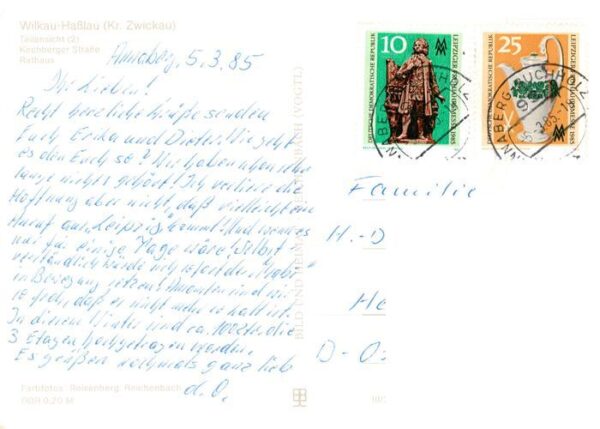 Wilkau-Haßlau (Kr. Zwickau)
Teilansicht (2)
Kirchberger Straße
Rathaus
Annaberg, 5.3.85
Ihr Lieben!
Recht herzliche Grüße senden
Euch Erika und Dieter! Wie geht
es den Euch so? Wir haben schon sehr
lange nichts gehört! Ich verliere die
Hoffnung aber nicht, daß vielleicht ein
Anruf aus Leipzig kommt! Und wenn es
nur für einige Tage wäre! Selbst-
verständlich würde ich sofort den "Trabi"
in Bewegung setzen! Ansonsten sind wir
so froh, daß es nicht mehr so kalt ist.
In diesem Winter sind ca. 100 Ztr. die
3 Etagen hochgetragen worden.
Es grüßen nochmals ganz lieb
d. O.
Farbfotos: Reisenberg, Reichenbach
DDR 0,20 M
BILD UND HEIMAT REICHENBACH (VOGTL)
10
DEUTSCHE DEMOKRATISCHE REPUBLIK
LEIPZIGER FRÜHJAHRSMESSE 1985
25
DEUTSCHE DEMOKRATISCHE REPUBLIK
LEIPZIGER FRÜHJAHRSMESSE 1985
ANNABERG-BUCHHOLZ
Familie
H.-D
He
D-O